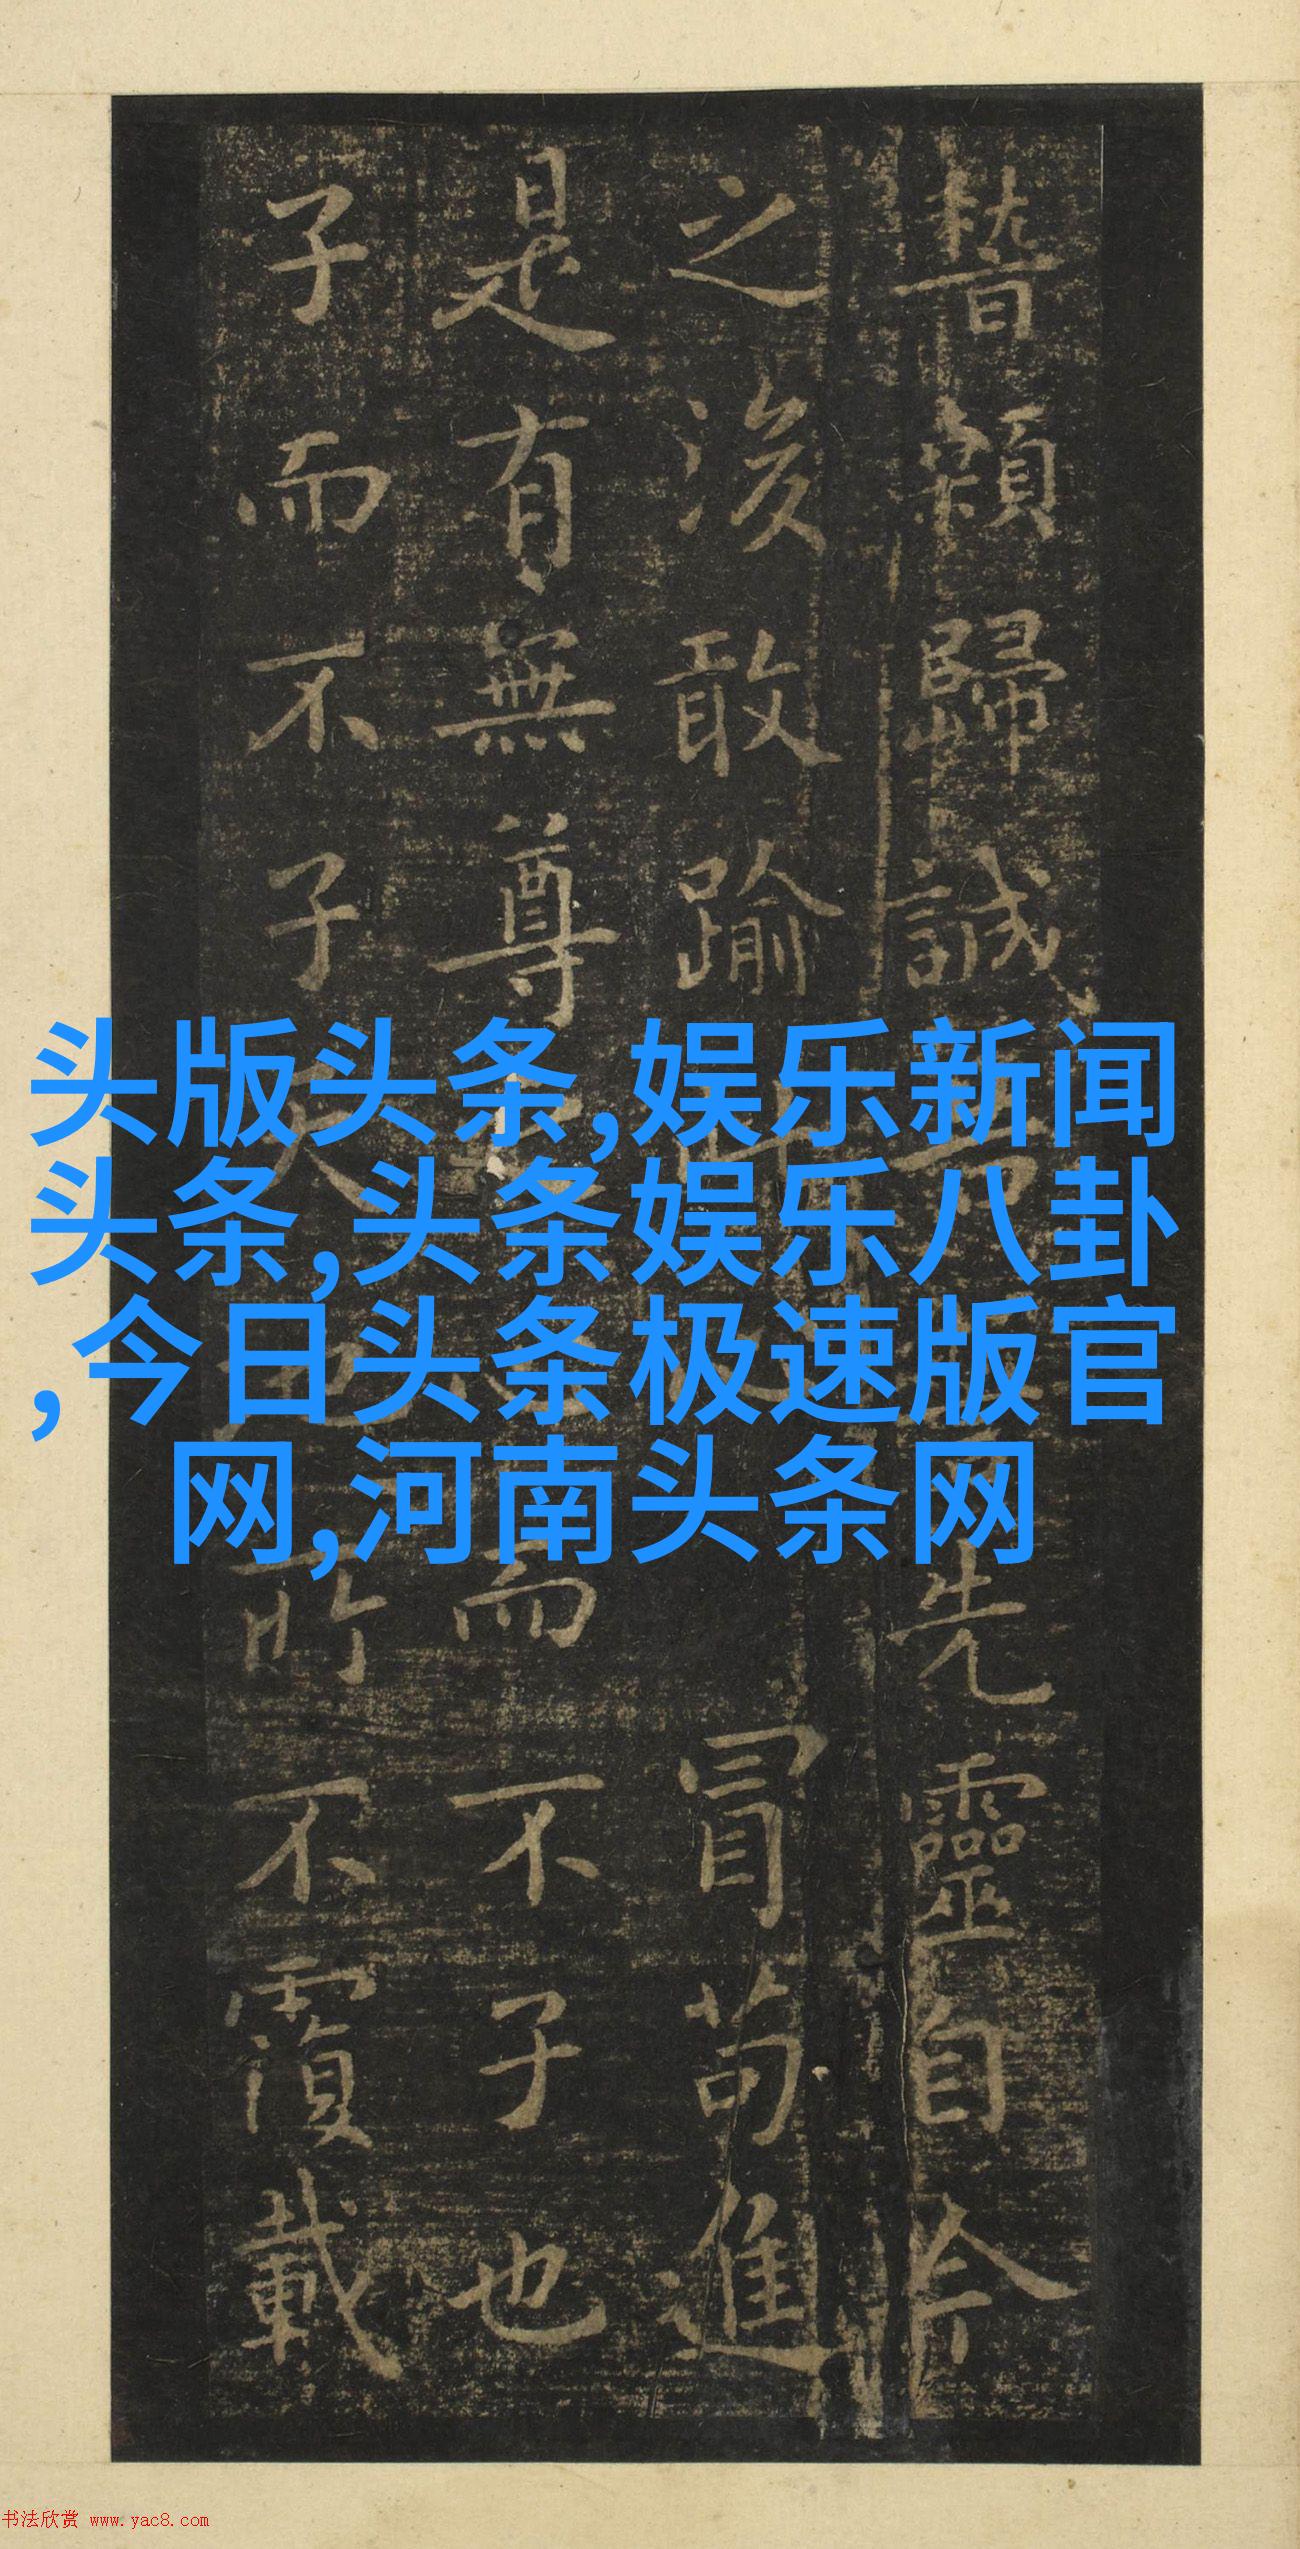 稽顙歸誠
先靈自今
之後敢踰
冒苟進
是有無尊
而不子也
子而不子
所不覆載
头版头条,娱乐新闻
头条,头条娱乐八卦
,今日头条极速版官
网,河南头条网
书法欣赏 www.yac8.com